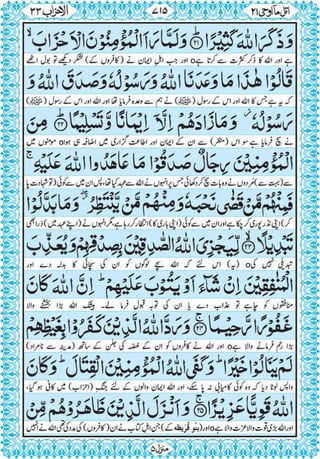 اتل مآ اوحی ٢١ ٧١٥ الاحزاب ٣٣
وَذَكَرَ اللّٰهَ كَثِيْرًا ﴿٢١﴾ وَلَمَّا رَاَ الْمُؤْمِنُوْنَ الْاَحْزَابَ ۙ
ہے اور اللہ کا ذکر کثرت سے کرتا ہےo اور جب اہل ایمان نے (کافروں کے) لشکر دیکھے تو بول اٹھے
قَالُوْا هٰذَا مَا وَعَدَنَا اللّٰهُ وَرَسُوْلُهٗ وَصَدَقَ اللّٰهُ وَ
کہ یہ ہے جس کا اللہ اور اس کے رسول (ﷺ) نے ہم سے وعدہ فرمایا تھا اور اللہ اور اس کے رسول (ﷺ)
رَسُوْلُهٗ ؗ وَمَا زَادَهُمْ اِلَّاۤ اِيْمَانًا وَّتَسْلِيْمًا ﴿٢٢﴾ مِنَ
نے سچ فرمایا ہے سو اس (منظر) سے ان کے ایمان اور اطاعت گزاری میں اضافہ ہی ہواo مومنوں میں
الْمُؤْمِنِيْنَ رِجَالٌ صَدَقُوْا مَا عَاهَدُوا اللّٰهَ عَلَيْهِ ۚ
سے (بہت سے) مردوں نے وہ بات سچ کر دکھائی جس پر انہوں نے اللہ سے عہد کیا تھا پس ان میں سے کوئی (تو شہادت پا
فَمِنْهُمْ مَّنْ قَضٰى نَحْبَهٗ وَمِنْهُمْ مَّنْ يَّنْتَظِرُ ۖ وَمَا بَدَّلُوْا
کر) اپنی نذر پوری کر چکا ہے اور ان میں سے کوئی (اپنی باری کا) انتظار کر رہا ہے مگر انہوں نے (اپنے عہد میں) ذرا بھی
تَبْدِيْلًا ﴿٢٣﴾ لِّيَجْزِيَ اللّٰهُ الصّٰدِقِيْنَ بِصِدْقِهِمْ وَيُعَذِّبَ
تبدیلی نہیں کیo (یہ) اس لئے کہ اللہ سچے لوگوں کو ان کی سچائی کا بدلہ دے اور
الْمُنٰفِقِيْنَ اِنْ شَآءَ اَوْ يَتُوْبَ عَلَيْهِمْ ؕ اِنَّ اللّٰهَ كَانَ
منافقوں کو چاہے تو عذاب دے یا ان کی توبہ قبول فرما لے۔ بیشک اللہ بڑا بخشنے والا
غَفُوْرًا رَّحِيْمًا ﴿٢٤﴾ وَرَدَّ اللّٰهُ الَّذِيْنَ كَفَرُوْا بِغَيْظِهِمْ
بڑا رحم فرمانے والا ہےo اور اللہ نے کافروں کو ان کے غصہ کی جلن کے ساتھ (مدینہ سے نامراد)
لَمْ يَنَالُوْا خَيْرًا ؕ وَكَفَى اللّٰهُ الْمُؤْمِنِيْنَ الْقِتَالَ ؕ وَكَانَ
واپس لوٹا دیا کہ وہ کوئی کامیابی نہ پا سکے، اور اللہ ایمان والوں کے لئے جنگ (احزاب) میں کافی ہو گیا،
اللّٰهُ قَوِيًّا عَزِيْزًا ﴿٢٥﴾ وَاَنْزَلَ الَّذِيْنَ ظَاهَرُوْهُمْ مِّنْ
اور اللہ بڑی قوت والا عزت والا ہےo اور (بنو قریظہ کے) جن اہل کتاب نے ان (کافروں) کی مدد کی تھی اللہ نے انہیں
منزل ٥